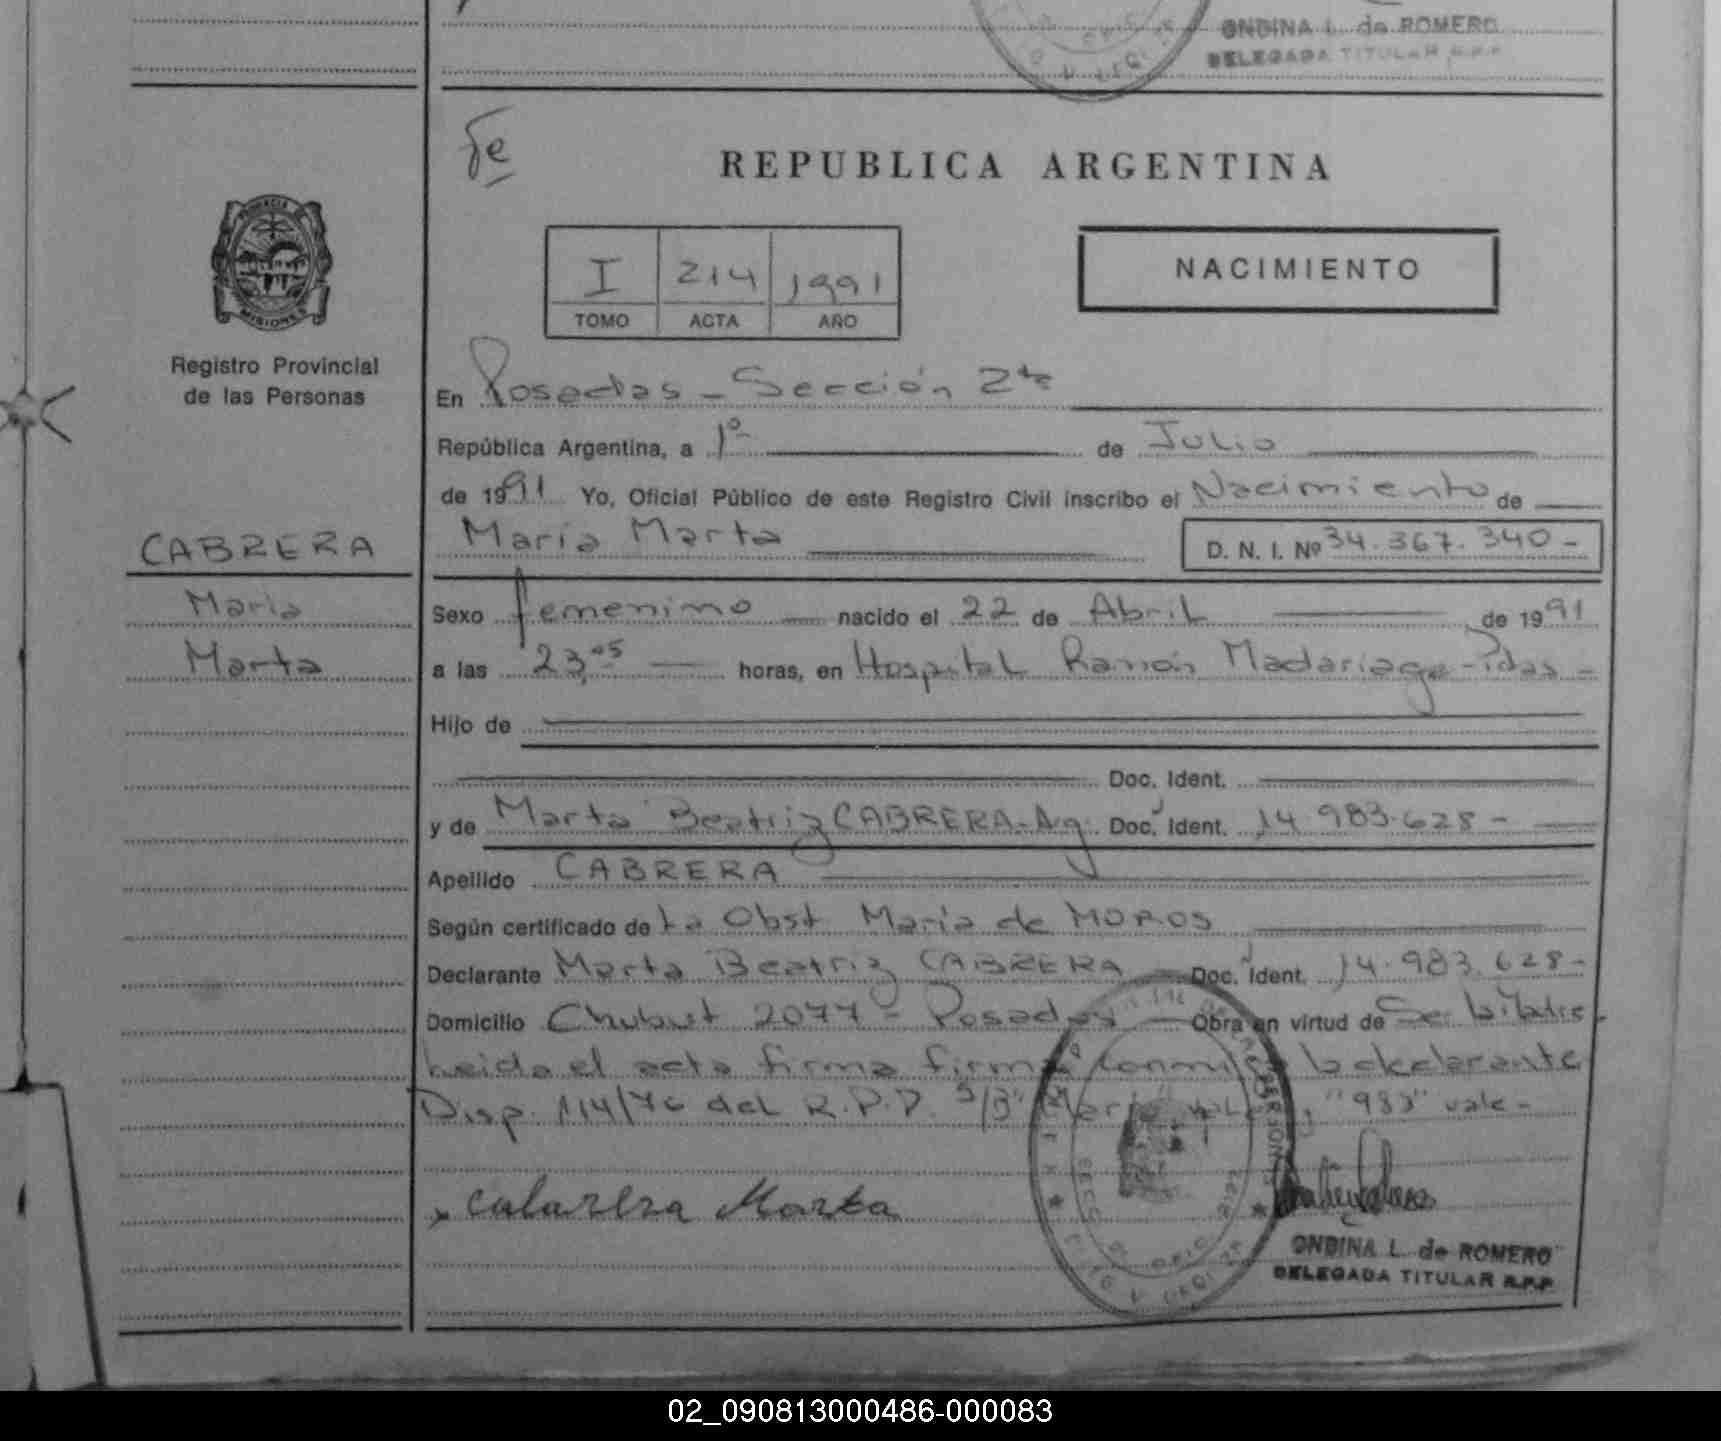 ONDINA L. de ROMERO
DELEGADA TITULAR R.P.P.
REPUBLICA ARGENTINA
PROVINCIA DE
MISIONES
Registro Provincial
de las Personas
I 214 1991
TOMO ACTA AÑO
NACIMIENTO
En Posadas - Sección 2ta
República Argentina, a 1º de Julio
de 1991 Yo, Oficial Público de este Registro Civil inscribo el Nacimiento de
CABRERA
María
Marta
María Marta D. N. I. Nº 34.367.340-
Sexo femenino nacido el 22 de Abril de 1991
a las 23,05 horas, en Hospital Ramón Madariaga - Pdas -
Hijo de
Doc. Ident.
y de Marta Beatriz CABRERA - Ag. Doc. Ident. 14.983.628-
Apellido CABRERA
Según certificado de La Obst María de MOROS
Declarante Marta Beatriz CABRERA Doc. Ident. 14.983.628-
Domicilio Chubut 2077 - Posadas Obra en virtud de Ser la Madre.
Leida el acta firma firma conmigo la declarante
Disp. 114/76 del R.P.P. S/B "983" vale -
Cabrera Marta
ONDINA L. de ROMERO
DELEGADA TITULAR R.P.P
02_090813000486-000083